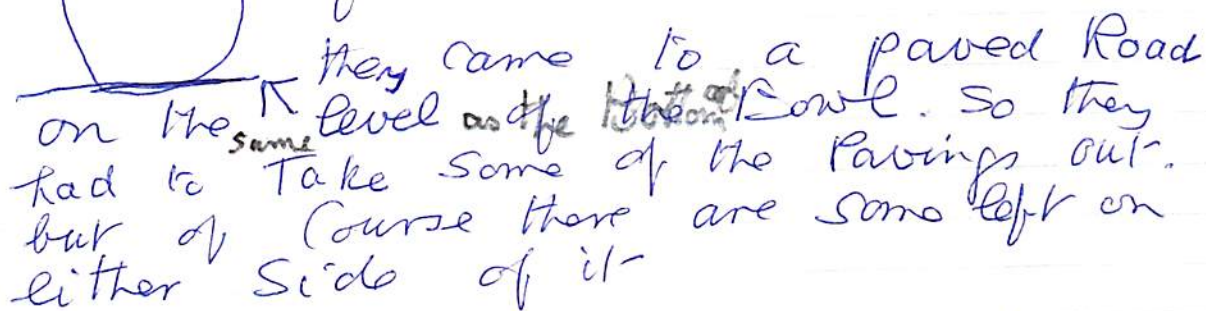 they came to a paved Road
on the same level as the Bottom of the Bowl. So they
had to Take some of the Pavings out.
but of Course there are some left on
either Side of it